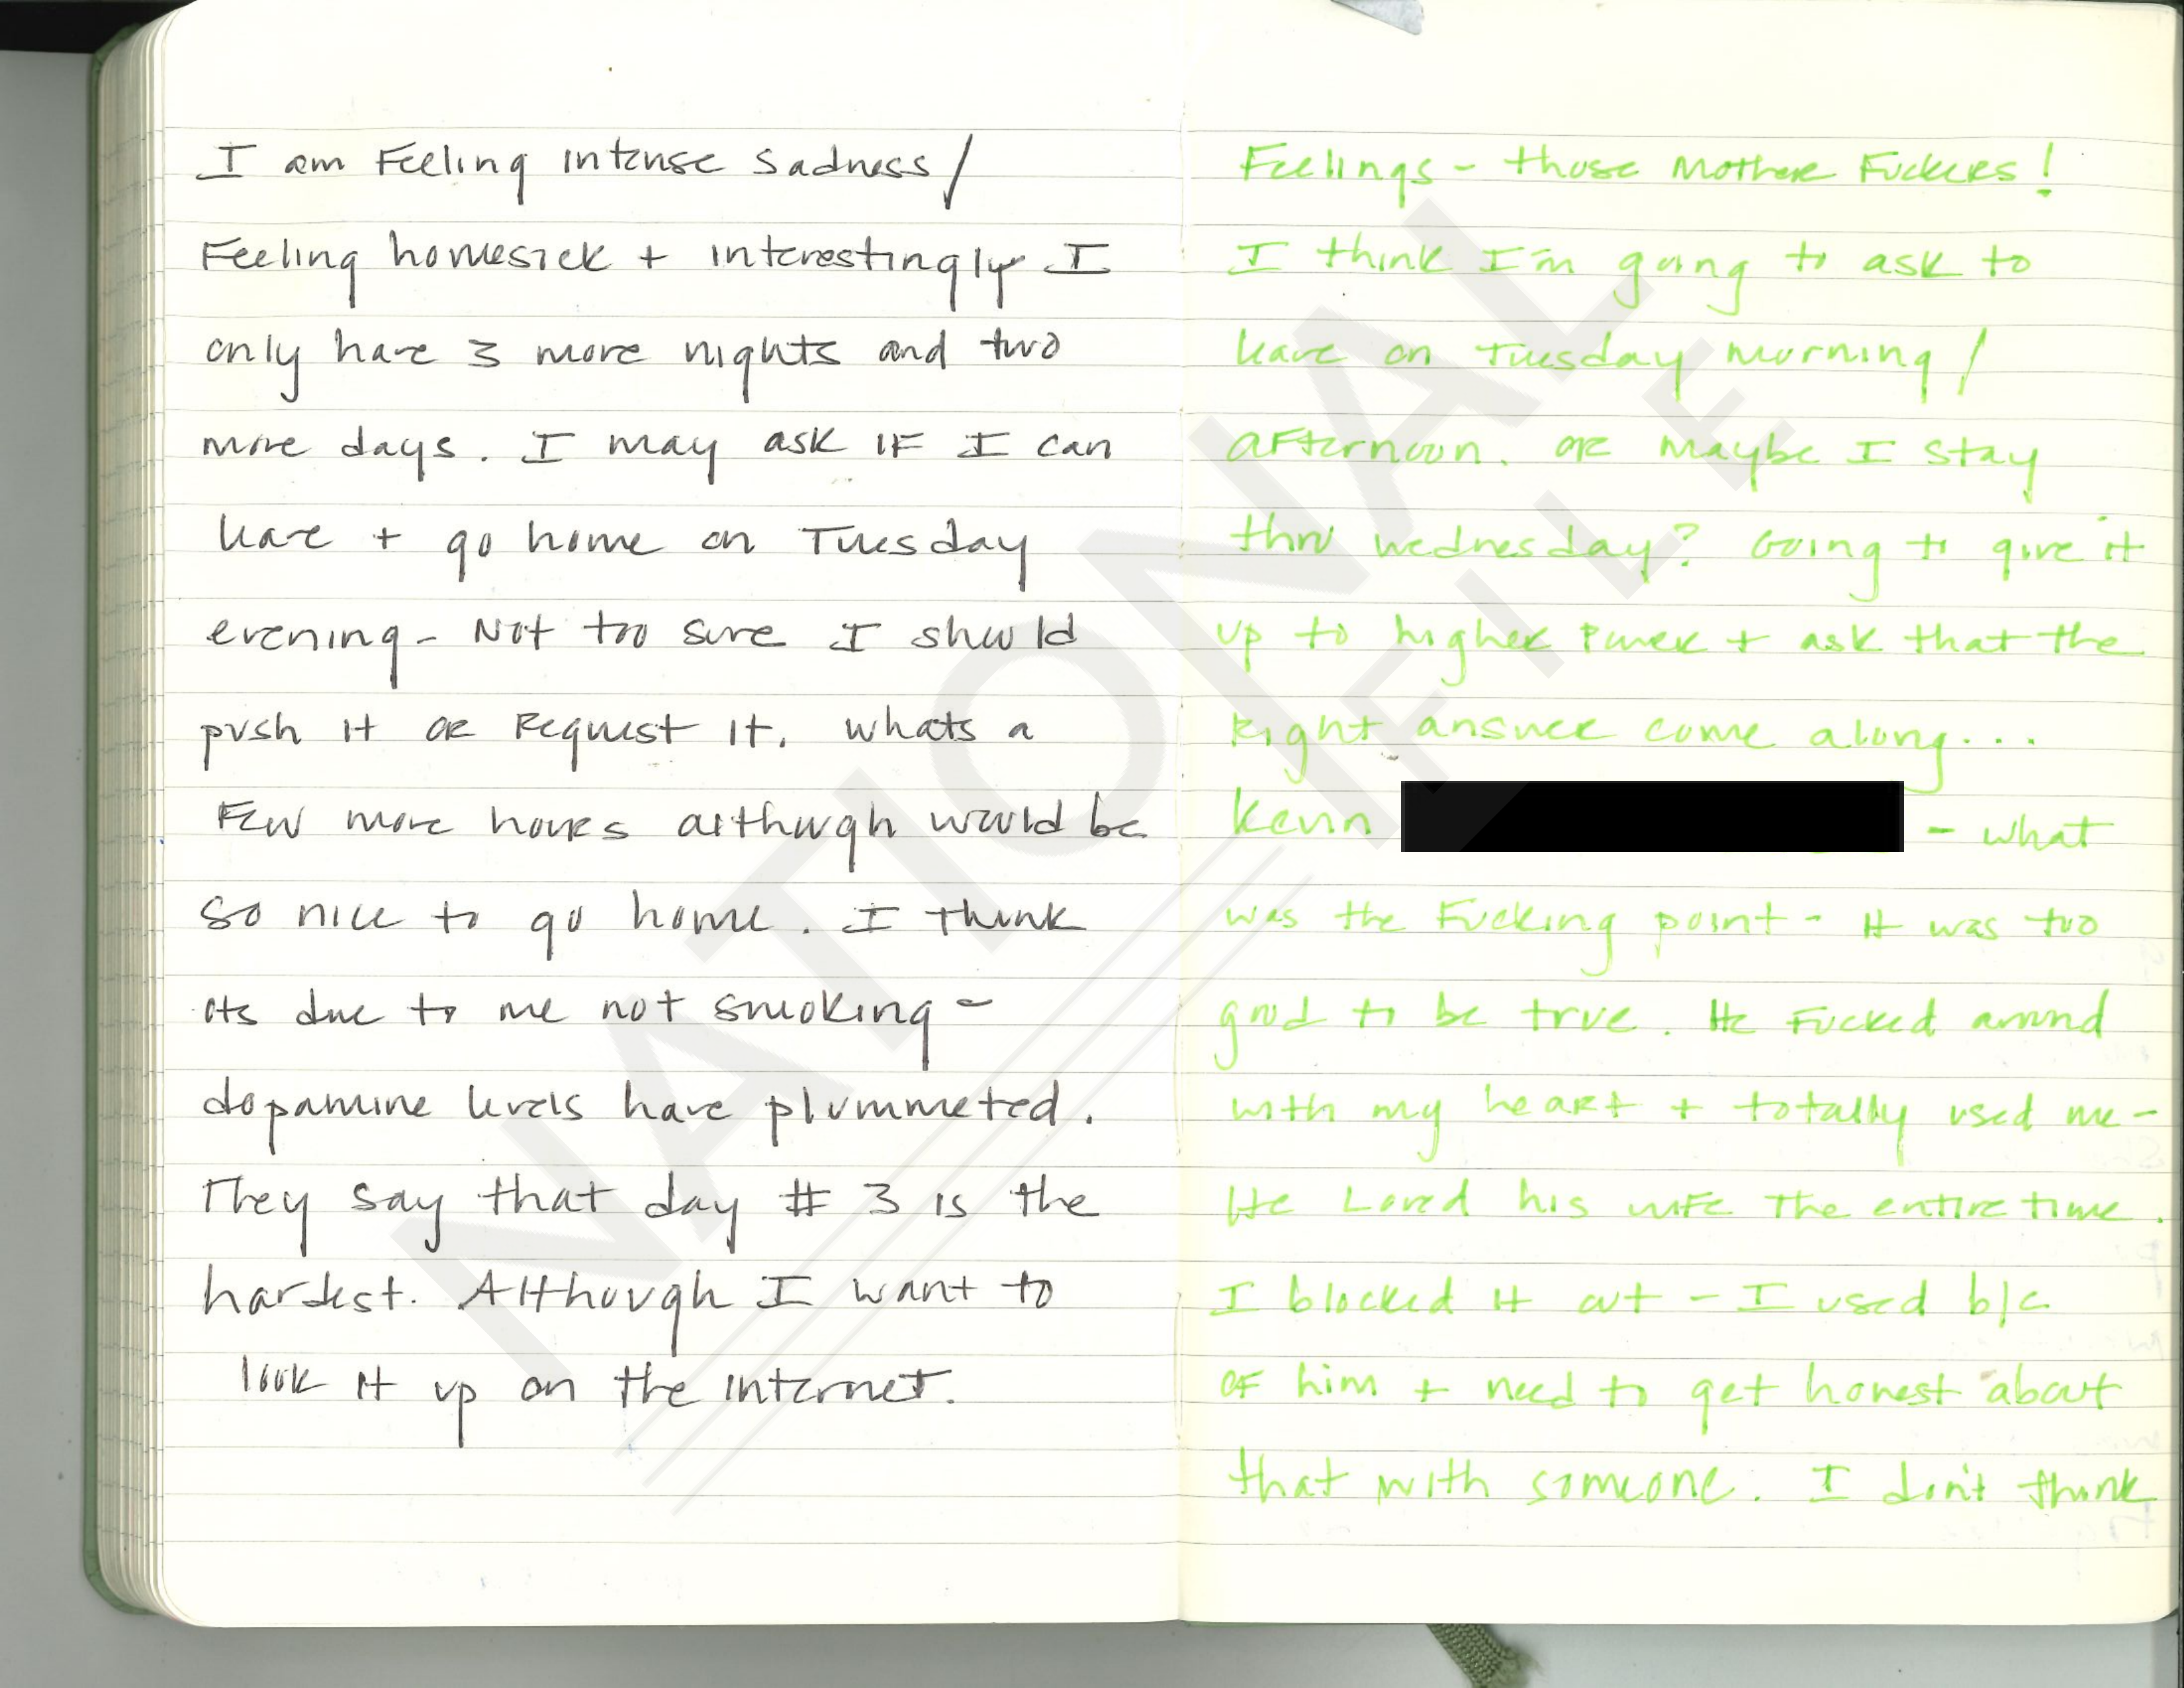 I am Feeling intense sadness/
Feeling homesick + interestingly I
only have 3 more nights and two
more days. I may ask IF I can
leave + go home on Tuesday
evening - Not too sure I should
push it or Request it. whats a
Few more hours although would be
so nice to go home. I think
its due to me not smoking -
dopamine levels have plummeted.
They say that day # 3 is the
hardest. Although I want to
look it up on the internet.
Feelings - those Mother Fuckers!
I think I'm going to ask to
leave on Tuesday morning /
afternoon. or maybe I stay
thru wednesday? Going to give it
up to higher Power + ask that the
Right answer come along...
Kevin - what
was the Fucking point - It was too
good to be true. He Fucked around
with my heart + totally used me -
He Loved his wife The entire time.
I blocked it out - I used b/c
of him + need to get honest about
that with someone. I don't think
NATIONAL
FILE